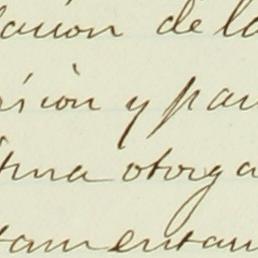 lacion de la
sion y par
tima otorga
tamentari